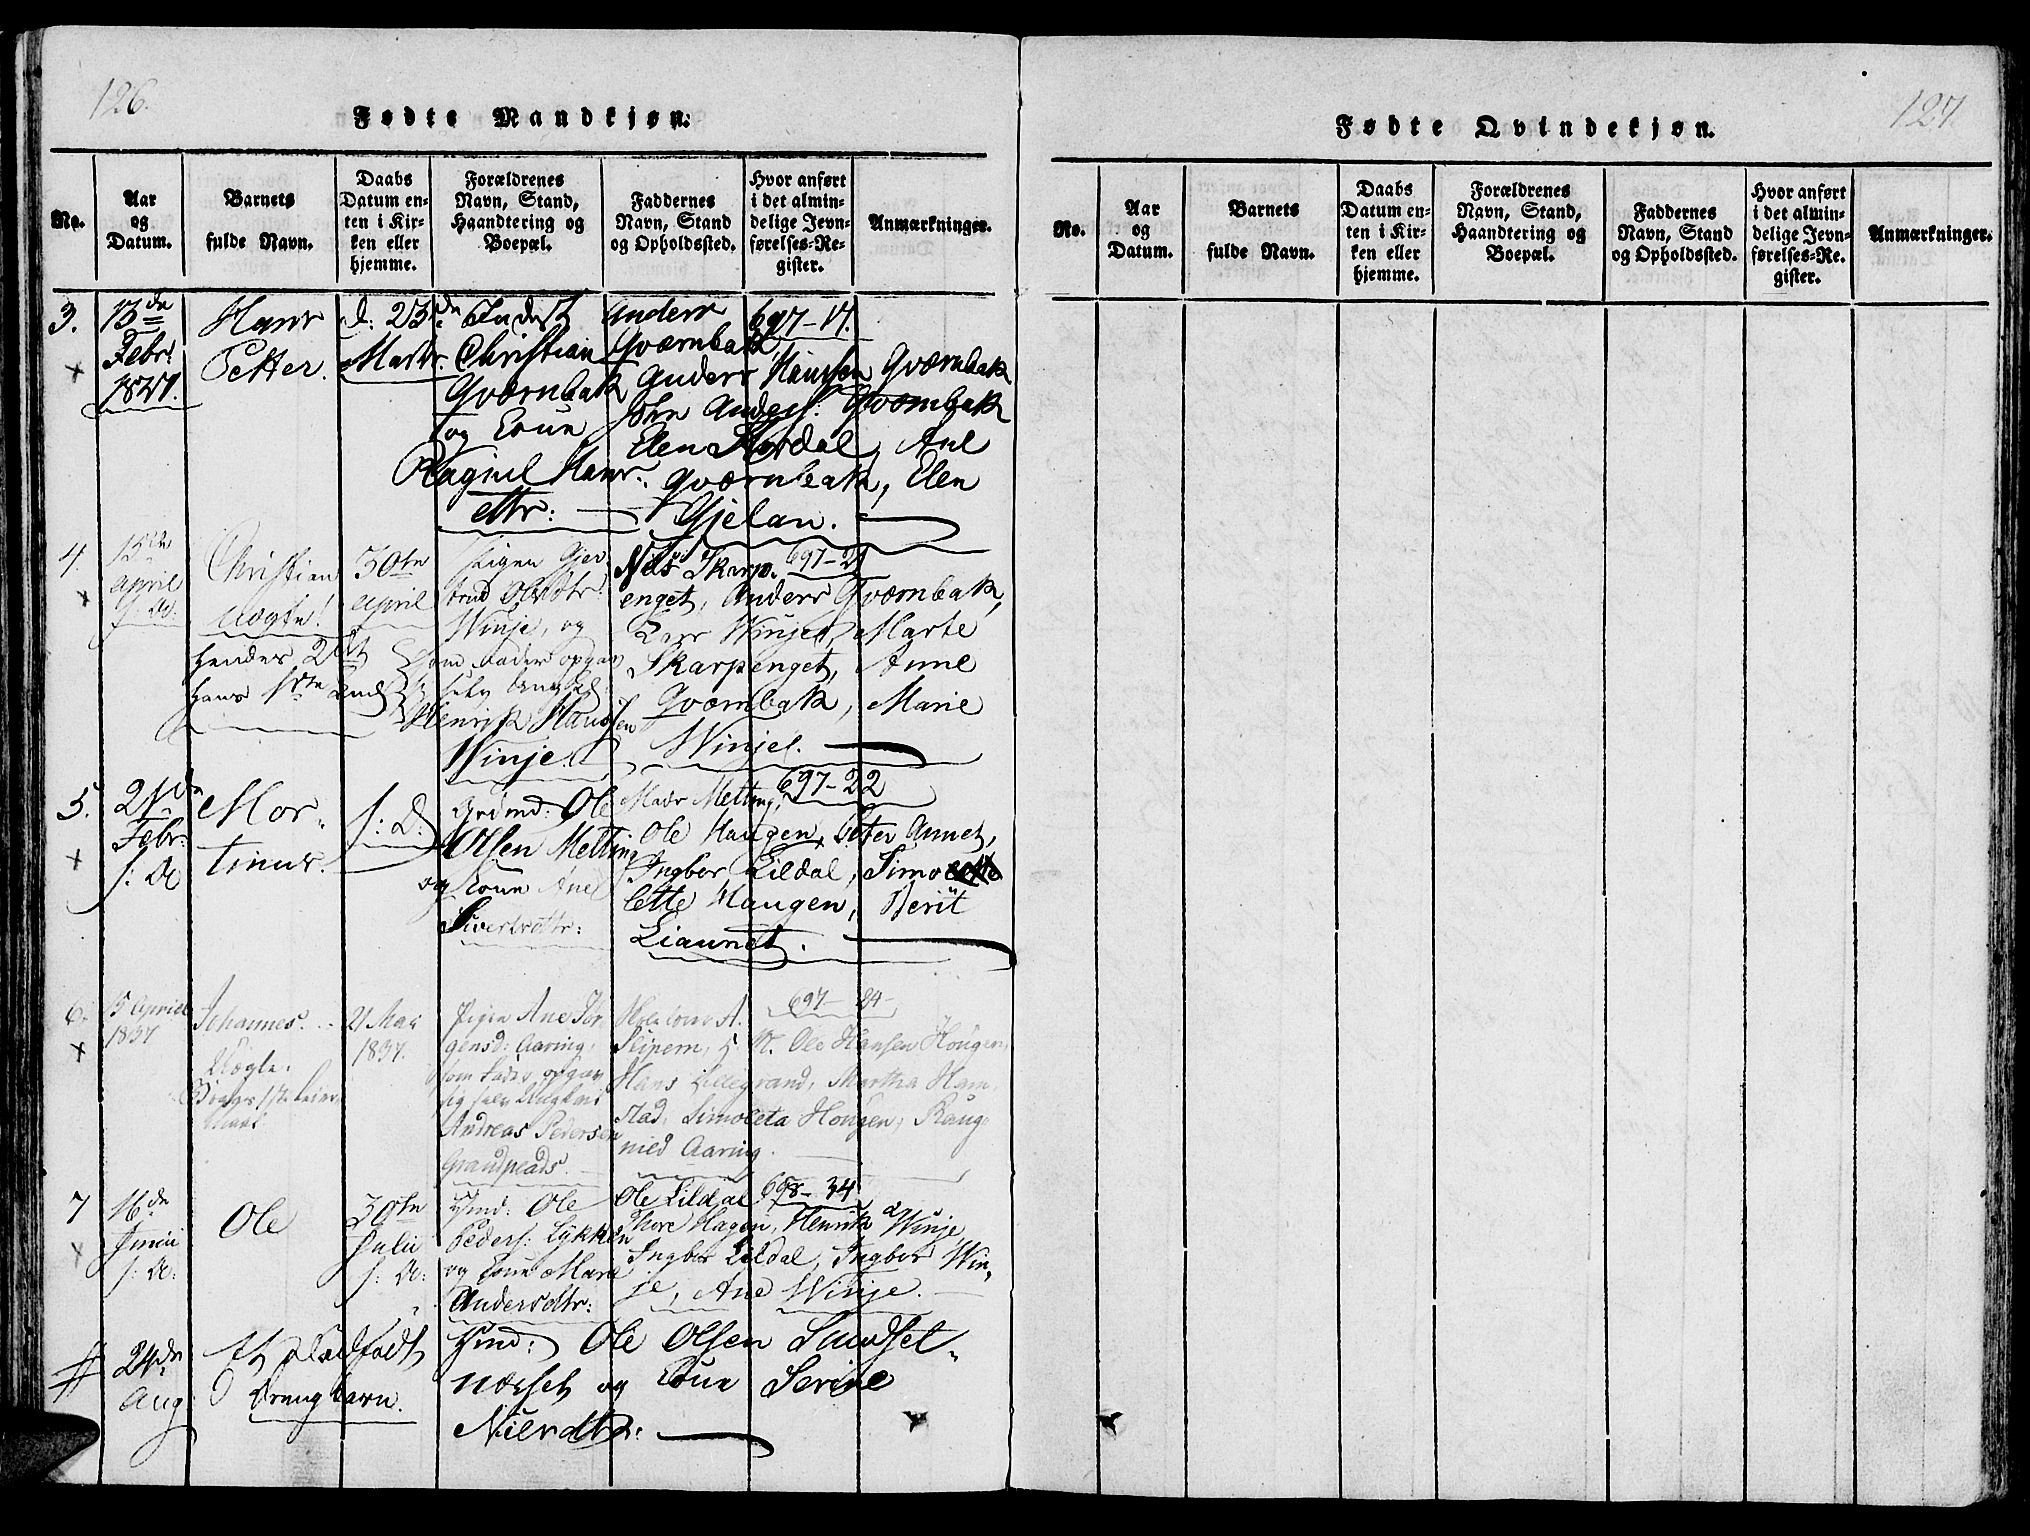 126.
Fødte Mandkjøn.
No.
Aar
og
Datum.
Barnets
fulde Navn.
Daabs
Datum en-
ten i Kir-
ken eller
hjemme.
Forældrenes
Navn, Stand,
Haandtering og
Boepæl.
Faddernes
Navn, Stand
og Opholdssted.
Hvor anført
i det almin-
delige Jevn-
førelses-Re-
gister.
Anmærkninger.
3.
13de
Febr:
1837.
Hans
Petter.
d: 23de
Marts.
Inderst
Christian
Qværnbak
og Kone
Ragnil Hans-
dtr:
Anders
Qværnbak,
Anders Hansen Qværnbak
John Anders: Qværnbak
Elen Stordal, Ane
Qværnbak, Elen
Gjelan.
697-17.
4.
15de
April
f: A:
Christian
Uægte!
Hendes 2det
Hans 1ste
30te
April
Pigen Gjer-
trud Olsdtr:
Winje, og
som Fader opgav
sig selv Ungkarl
Henrik Hansen
Winje.
Niels Skarp-
enget, Anders Qværnbak,
Lars Winje, Marte
Skarpenget, Anne
Qværnbak, Marie
Winje.
697-21
5.
21de
Febr:
f: A:
Mor-
tinus.
f: D:
Grdmd: Ole
Olsen Melting
og Kone Ane
Sivertsdtr:
Mads Melting,
Ole Haugen, Peter Aunet,
Ingbor Lildal, Simo
lette Haugen, Berit
Liaunet.
697-22
6.
15 Aprill
1837
Johannes.
Uægte.
21 Mai
1837.
Pigen Ane Jør-
gensd: Aaring,
som Fader opgav
sig selv Ungkarl
Andreas Pedersen
Grandpeads.
A.
Ole Hansen Hougen,
Hans Lillegrand, Martha Ham-
stad, Simoleta Hougen, Raug-
nied Aaring.
697-24-
7
16de
Junii
f: A:
Ole
30te
Julii
f: A:
Hmd: Ole
Peders: Løkken
og Kone Marie
Andersdtr:
Ole Lildal
Thore Hagen, Henrik Winje,
Ingbor Lildal, Ingbor Win-
je, Ane Winje.
698-34
24de
Aug:
Et dødfødt
Drengebarn.
Hmd: Ole Olsen Sundset-
næsset og Kone Serine
Nielsdtr:
127
Fødte Qvindekjøn.
No.
Aar
og
Datum.
Barnets
fulde Navn.
Daabs
Datum en-
ten i Kir-
ken eller
hjemme.
Forældrenes
Navn, Stand,
Haandtering og
Boepæl.
Faddernes
Navn, Stand
og Opholdssted.
Hvor anført
i det almin-
delige Jevn-
førelses-Re-
gister.
Anmærkninger.